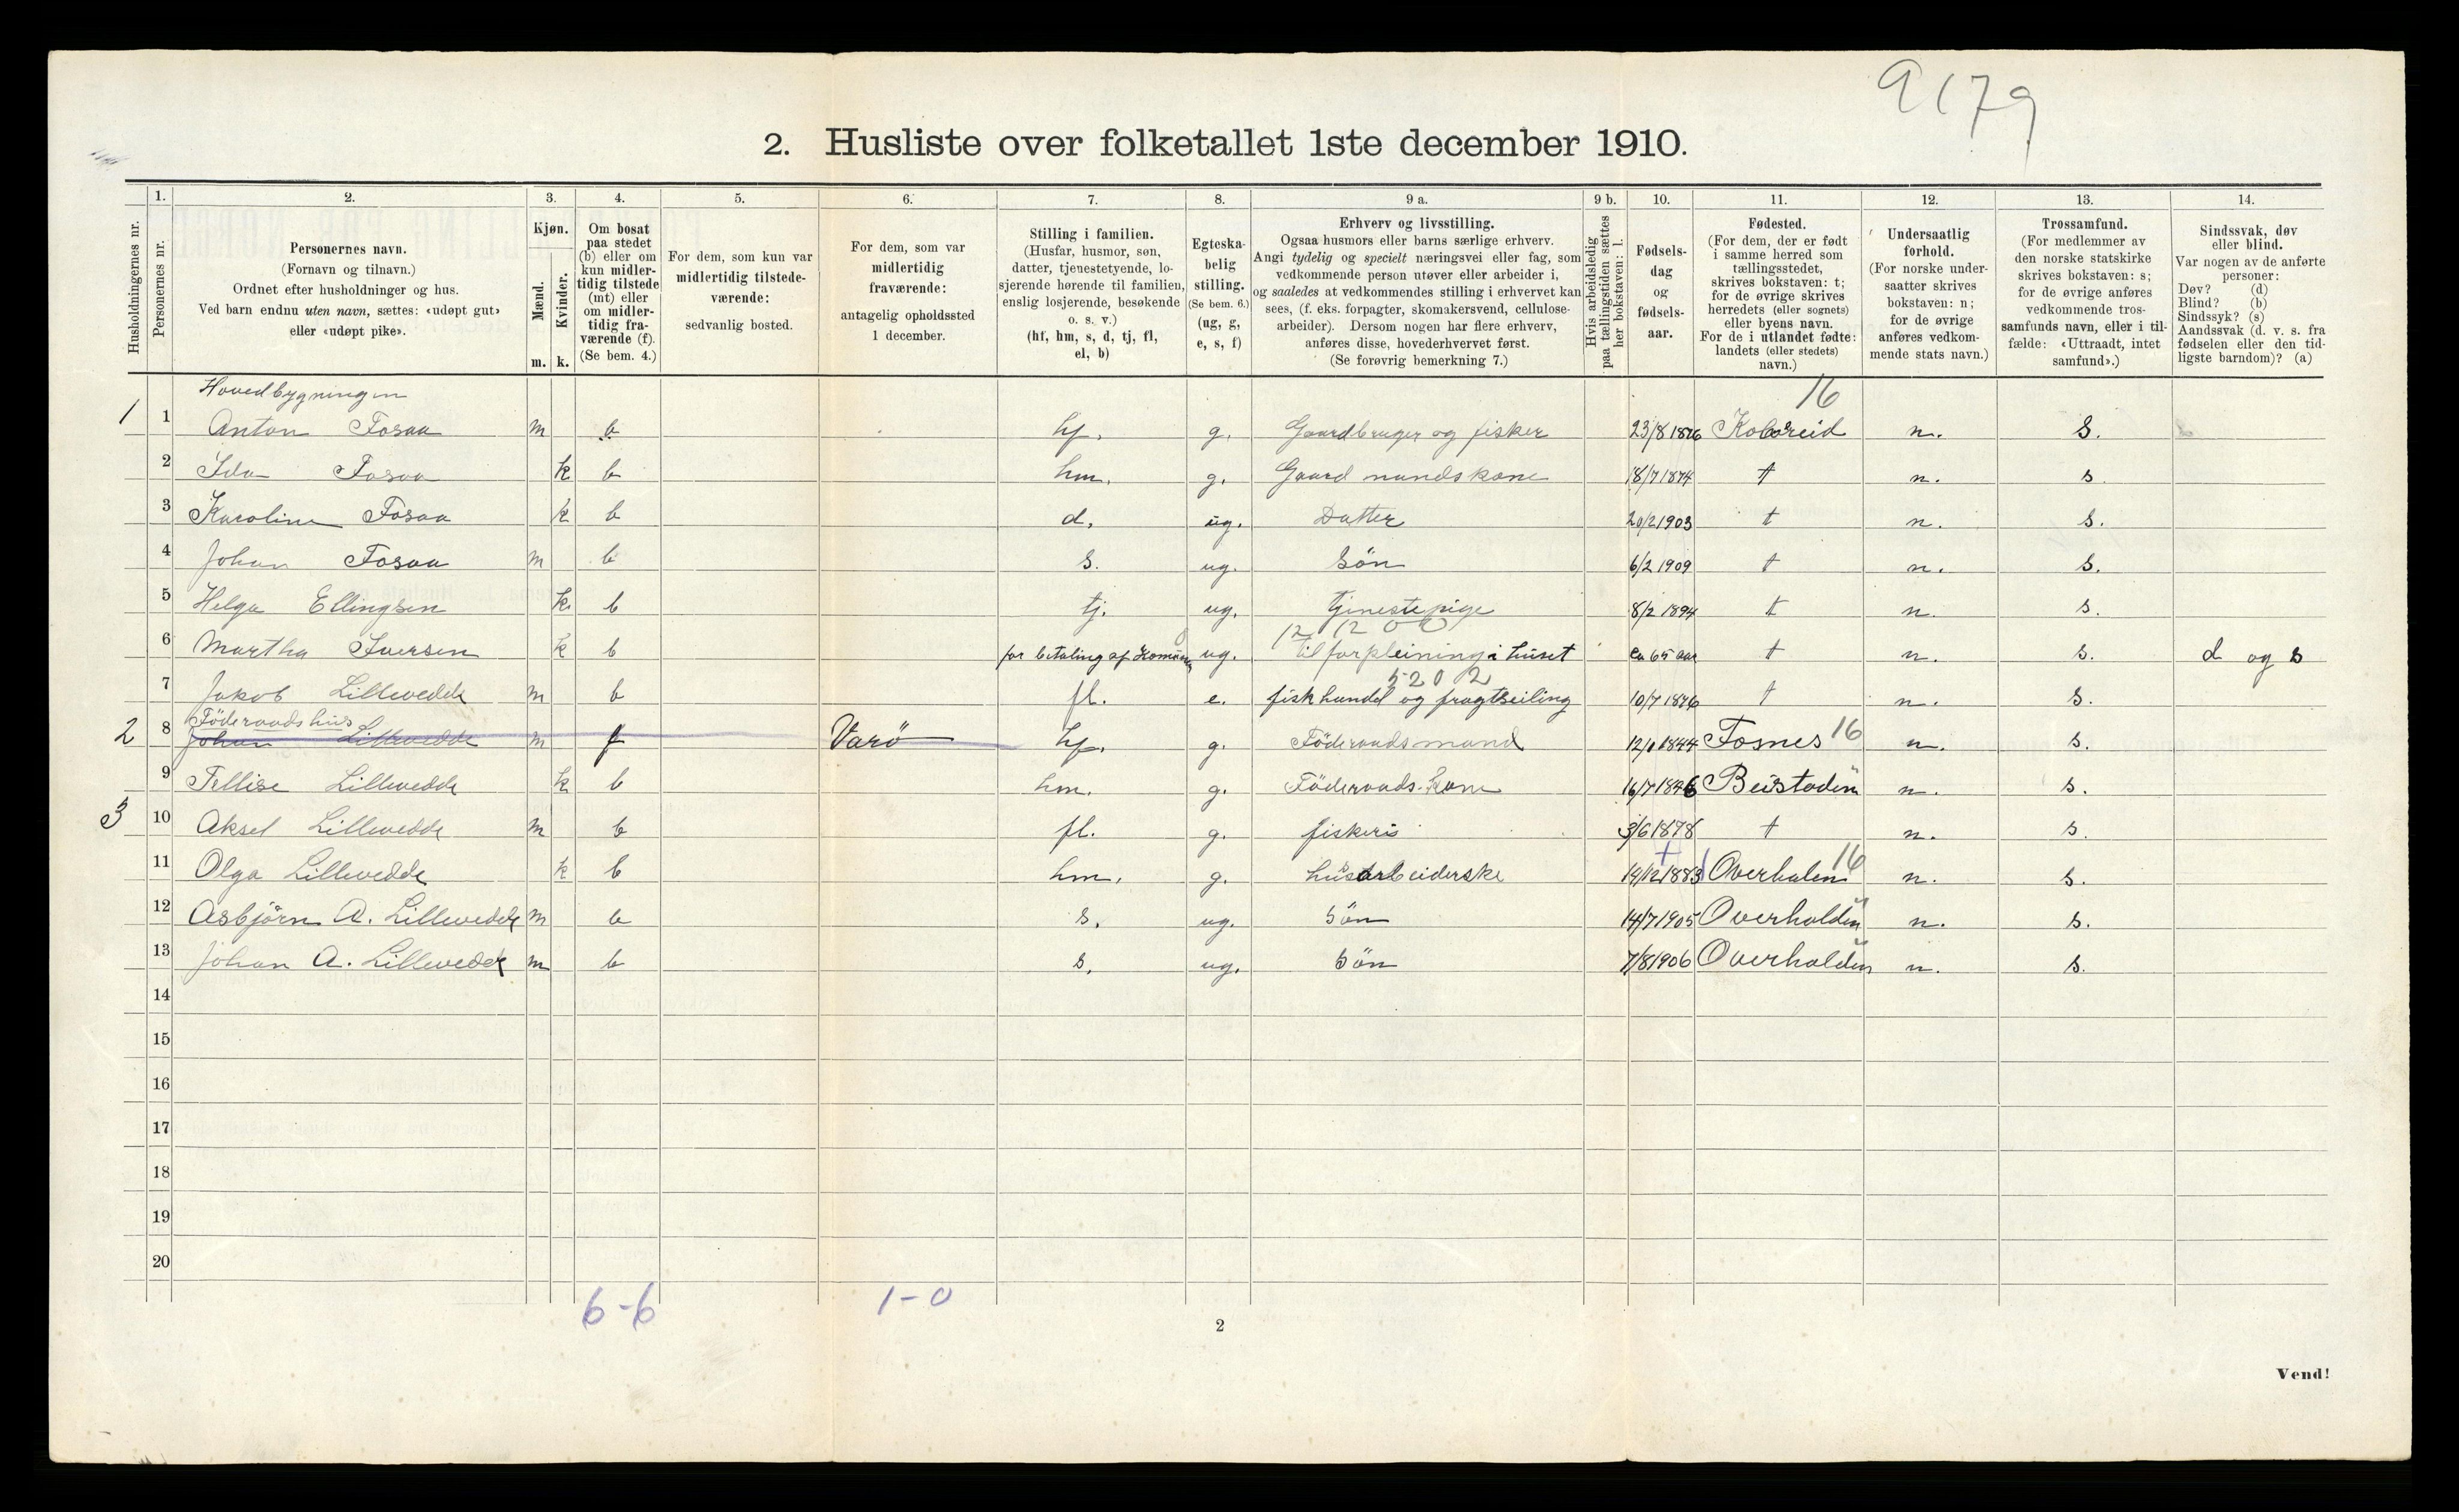 9179
2. Husliste over folketallet 1ste december 1910.
Husholdningernes nr.
1.
Personernes nr.
2.
Personernes navn.
(Fornavn og tilnavn.)
Ordnet efter husholdninger og hus.
Ved barn endnu uten navn, sættes: «udøpt gut»
eller «udøpt pike».
3.
Kjøn.
Mænd.
m.
Kvinder.
k.
4.
Om bosat
paa stedet
(b) eller om
kun midler-
tidig tilstede
(mt) eller
om midler-
tidig fra-
værende (f).
(Se bem. 4.)
5.
For dem, som kun var
midlertidig tilstede-
værende:
sedvanlig bosted.
6.
For dem, som var
midlertidig
fraværende:
antagelig opholdssted
1 december.
7.
Stilling i familien.
(Husfar, husmor, søn,
datter, tjenestetyende, lo-
sjerende hørende til familien,
enslig losjerende, besøkende
o. s. v.)
(hf, hm, s, d, tj, fl,
el, b)
8.
Egteska-
belig
stilling.
(Se bem. 6.)
(ug, g,
e, s, f)
9 a.
Erhverv og livsstilling.
Ogsaa husmors eller barns særlige erhverv.
Angi tydelig og specielt næringsvei eller fag, som
vedkommende person utøver eller arbeider i,
og saaledes at vedkommendes stilling i erhvervet kan
sees, (f. eks. forpagter, skomakersvend, cellulose-
arbeider). Dersom nogen har flere erhverv,
anføres disse, hovederhvervet først.
(Se forøvrig bemerkning 7.)
9 b.
Hvis arbeidsledig
paa tællingstiden sættes
her bokstaven: l.
10.
Fødsels-
dag
og
fødsels-
aar.
11.
Fødested.
(For dem, der er født
i samme herred som
tællingsstedet,
skrives bokstaven: t;
for de øvrige skrives
herredets (eller sognets)
eller byens navn.
For de i utlandet fødte:
landets (eller stedets)
navn.)
12.
Undersaatlig
forhold.
(For norske under-
saatter skrives
bokstaven: n;
for de øvrige
anføres vedkom-
mende stats navn.)
13.
Trossamfund.
(For medlemmer av
den norske statskirke
skrives bokstaven: s;
for de øvrige anføres
vedkommende tros-
samfunds navn, eller i til-
fælde: «Uttraadt, intet
samfund».)
14.
Sindssvak, døv
eller blind.
Var nogen av de anførte
personer:
Døv? (d)
Blind? (b)
Sindssyk? (s)
Aandssvak (d. v. s. fra
fødselen eller den tid-
ligste barndom)? (a)
Hovedbygningen 16
1 1 Anton Fosaa m b hf. g. Gaardbruger og fisker 23/8 1876 Kolvreid n. s.
2 Ida Fosaa k b hm. g. Gaard mandskone 18/7 1874 t n. s
3 Karoline Fosaa k b d. ug. Datter 20/2 1903 t n. s.
4 Johan Fosaa m b s. ug. Sön 6/2 1909 t n. s.
5 Helga Ellingsen k b tj. ug. tjenestepige 8/2 1894 t n. s.
12 12 0 0
6 Martha Iversen k b for betaling af Komunen ug. til forpleining i huset ca 65 aar t n. s. d og s
5202
7 Jakob Lillevedde m b fl. e. fiskhandel og fragtseiling 10/7 1876 t n. s.
Föderaadshus
2 8 Johan Lillevedde m f Varö hf. g. Föderaadsmand 12/1 1844 Fosnes 16 n. s.
9 Tellise Lillevedde k b hm. g. Föderaads-kone 16/7 1846 Beistaden n. s.
3 10 Aksel Lillevedde m b fl. g. fiskeri 3/6 1878 t n. s.
11 Olga Lillevedde k b hm. g. husarbeiderske 14/12 1883 Overhalen 16 n. s.
12 Asbjörn A. Lillevedde m b s. ug. Sön 14/7 1905 Overhalden n. s.
13 Johan A. Lillevedde m b s. ug. Sön 7/8 1906 Overhalden n. s.
14
15
16
17
18
19
20
6-6 1-0
2
Vend!